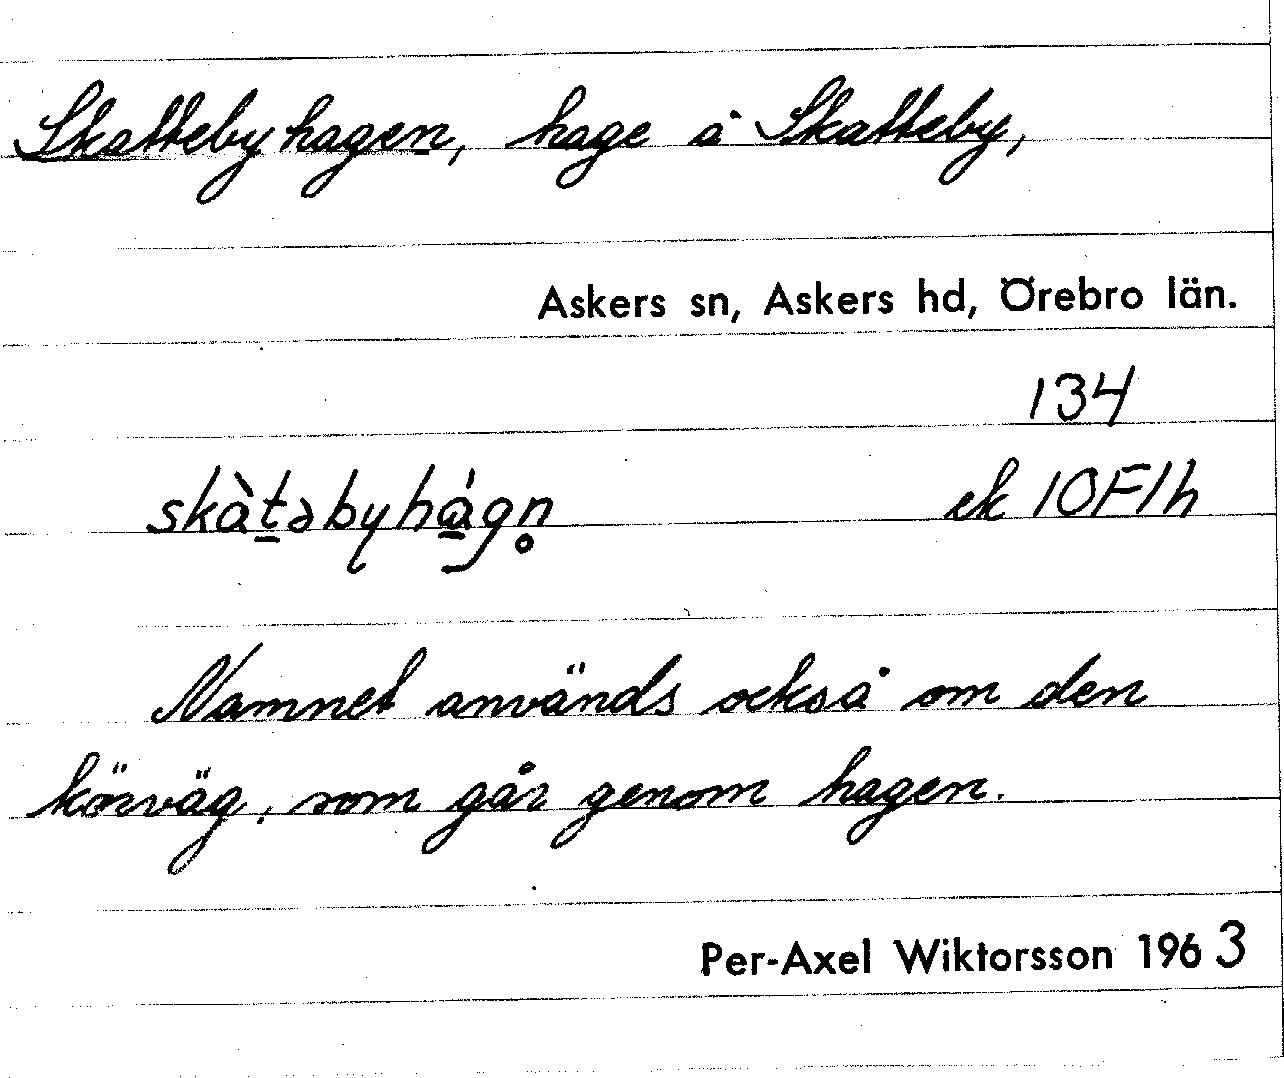 Skattebyhagen, hage å Skatteby,
Askers sn, Askers hd, Örebro län.
134
skàt̠əbyhá̠gn̥ ek 10F1h
Namnet används också om den
körväg, som går genom hagen.
Per-Axel Wiktorsson 1963